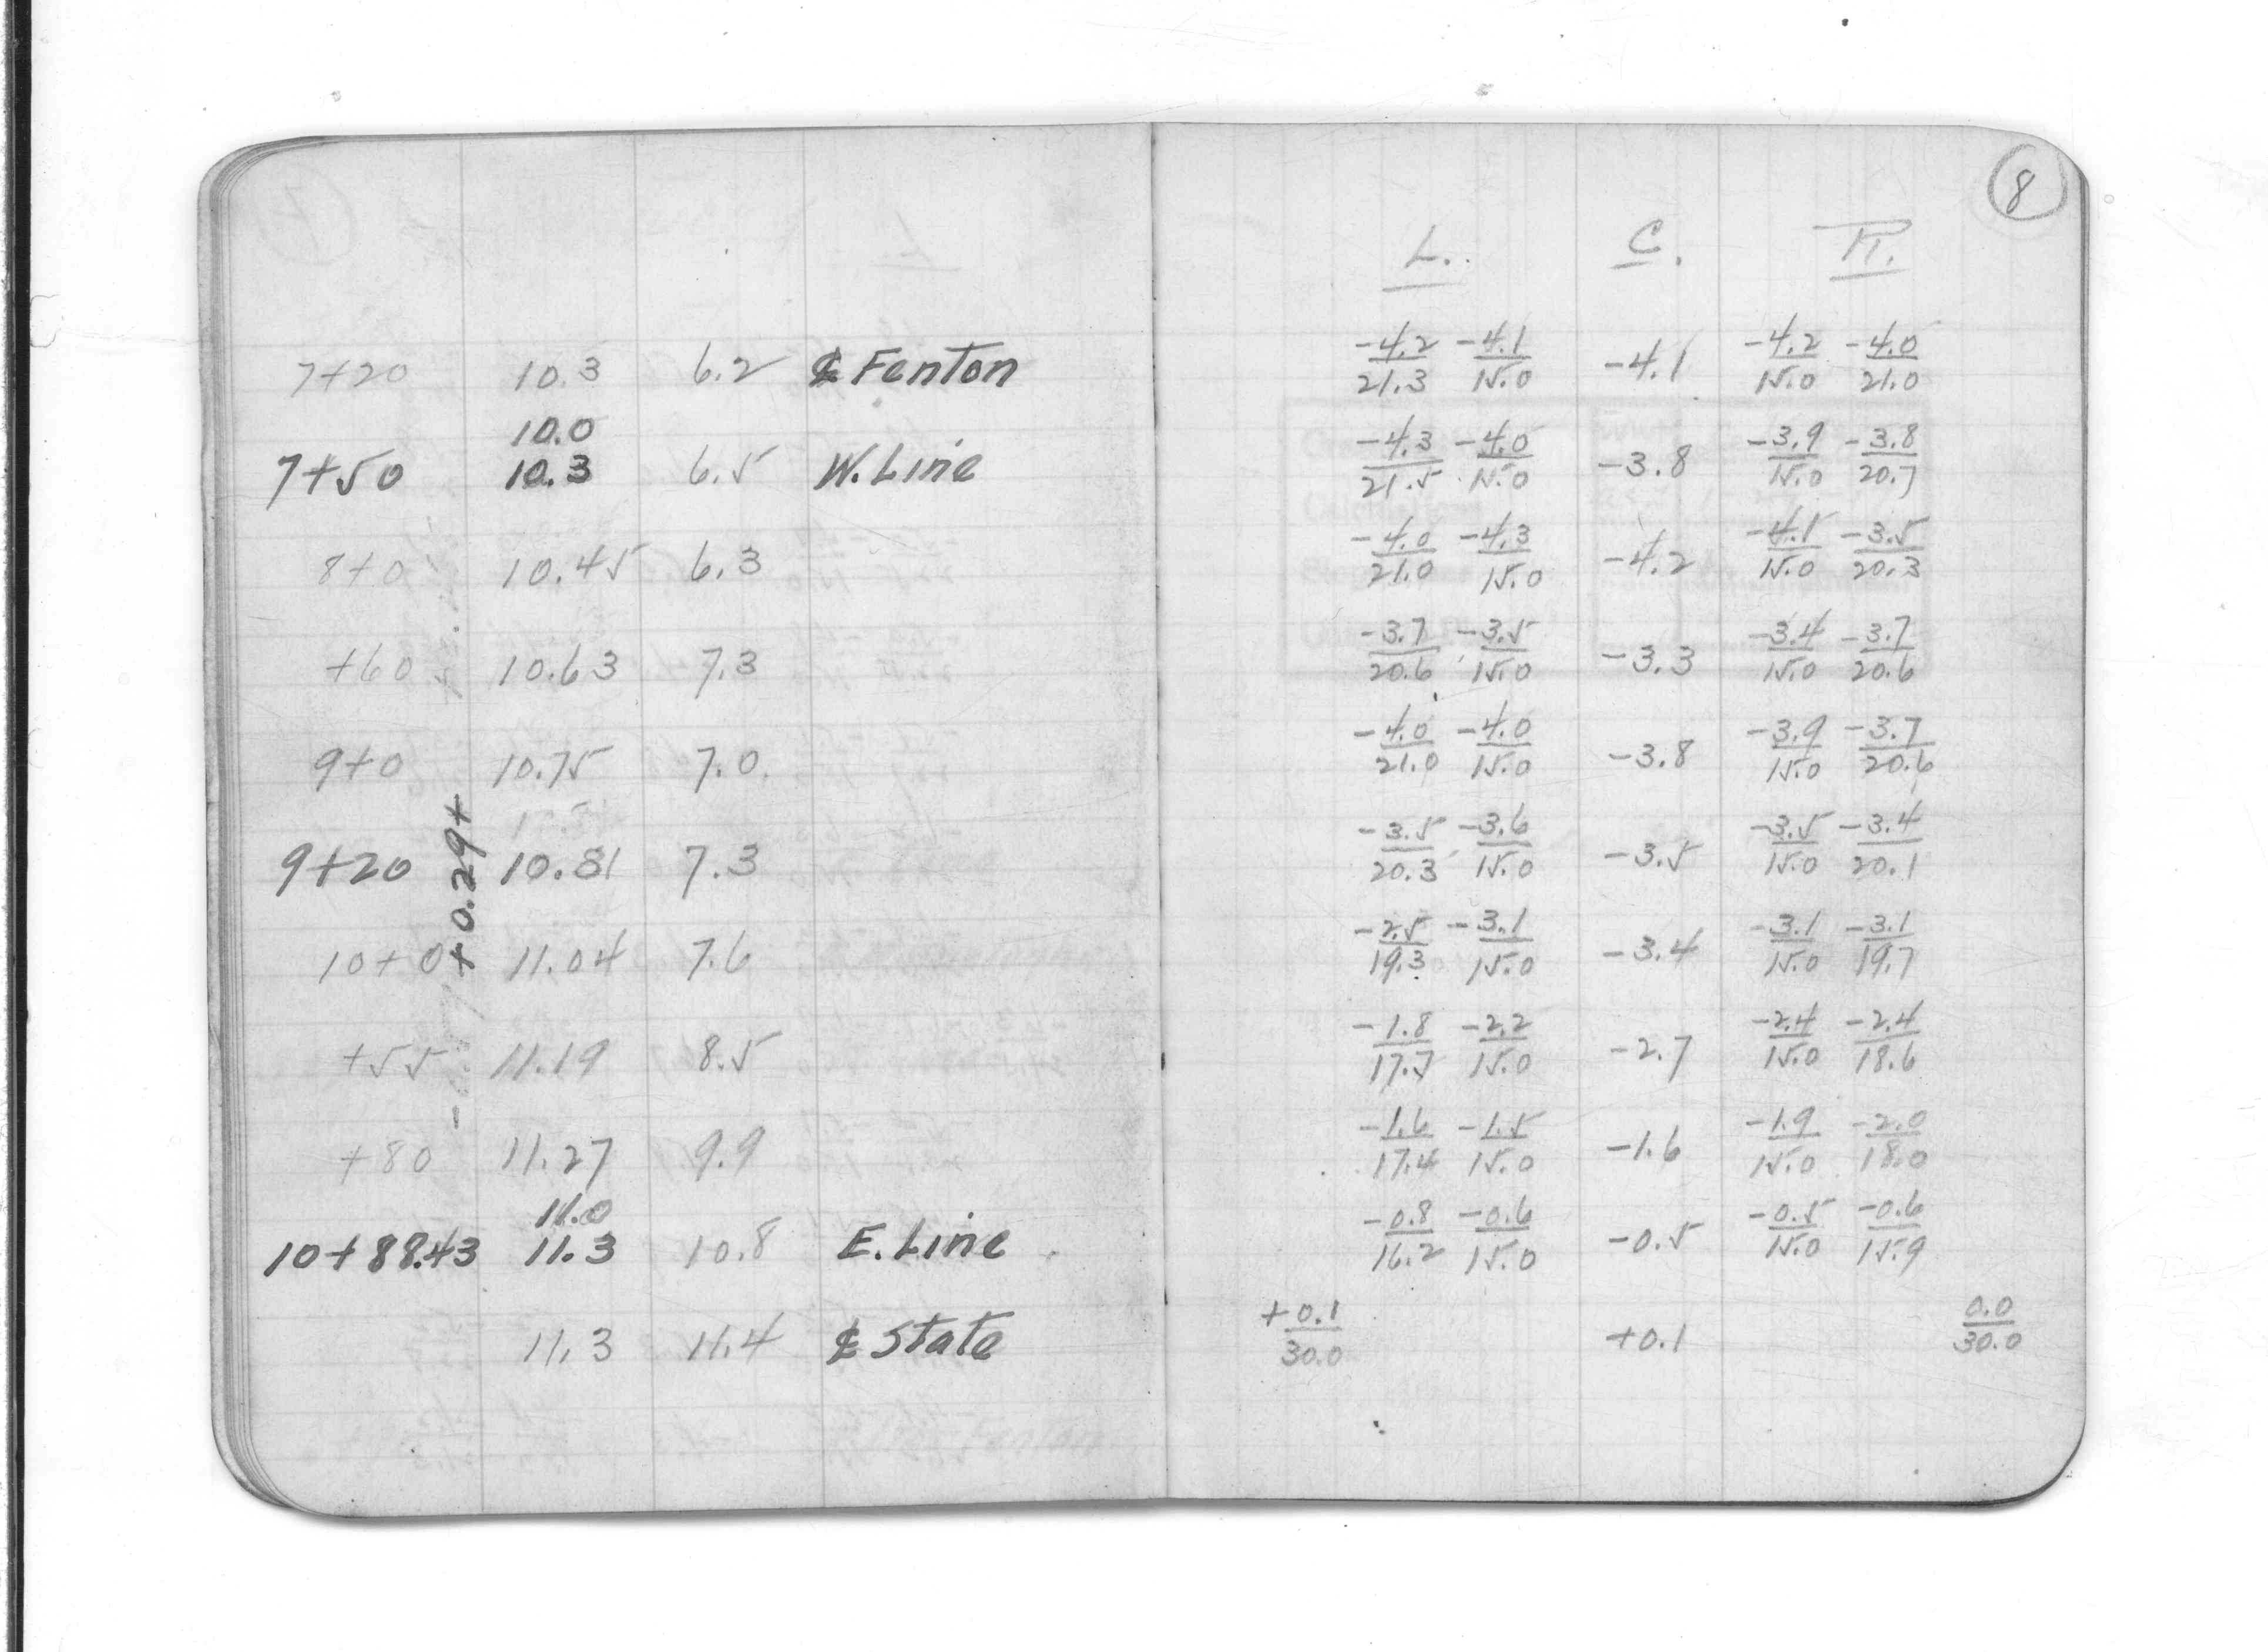 8
L. C. R.
7+20 10.3 6.2 ℄ Fenton -4.2/21.3 -4.1/15.0 -4.1 -4.2/15.0 -4.0/21.0
10.0
7+50 10.3 6.5 W. Line -4.3/21.5 -4.0/15.0 -3.8 -3.9/15.0 -3.8/20.7
8+0 10.45 6.3 -4.0/21.0 -4.3/15.0 -4.2 -4.1/15.0 -3.5/20.3
+60 10.63 7.3 -3.7/20.6 -3.5/15.0 -3.3 -3.4/15.0 -3.7/20.6
9+0 10.75 7.0 -4.0/21.0 -4.0/15.0 -3.8 -3.9/15.0 -3.7/20.6
+0.29+
9+20 10.81 7.3 -3.5/20.3 -3.6/15.0 -3.5 -3.5/15.0 -3.4/20.1
10+0 11.04 7.6 -2.5/19.3 -3.1/15.0 -3.4 -3.1/15.0 -3.1/19.7
+55 11.19 8.5 -1.8/17.7 -2.2/15.0 -2.7 -2.4/15.0 -2.4/18.6
+80 11.27 9.9 -1.6/17.4 -1.5/15.0 -1.6 -1.9/15.0 -2.0/18.0
11.0
10+88.43 11.3 10.8 E. Line -0.8/16.2 -0.6/15.0 -0.5 -0.5/15.0 -0.6/15.9
11.3 11.4 ℄ State +0.1/30.0 +0.1 0.0/30.0